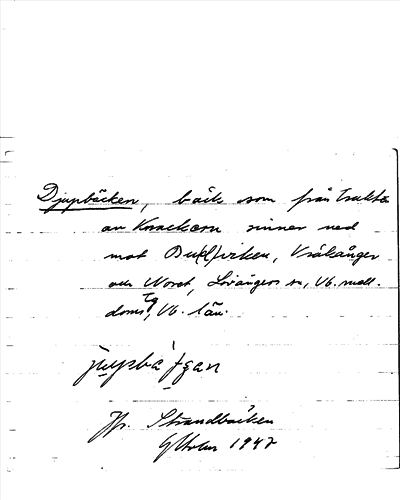 Djupbäcken, bäck som från trakten
av Knackern rinner ned
mot Bu(l)viken, Vråkånger
och Noret, Lövångers sn, Vb. mell.
doms tg, Vb. län.
Jfr. Strandbäcken
GHolm 1947